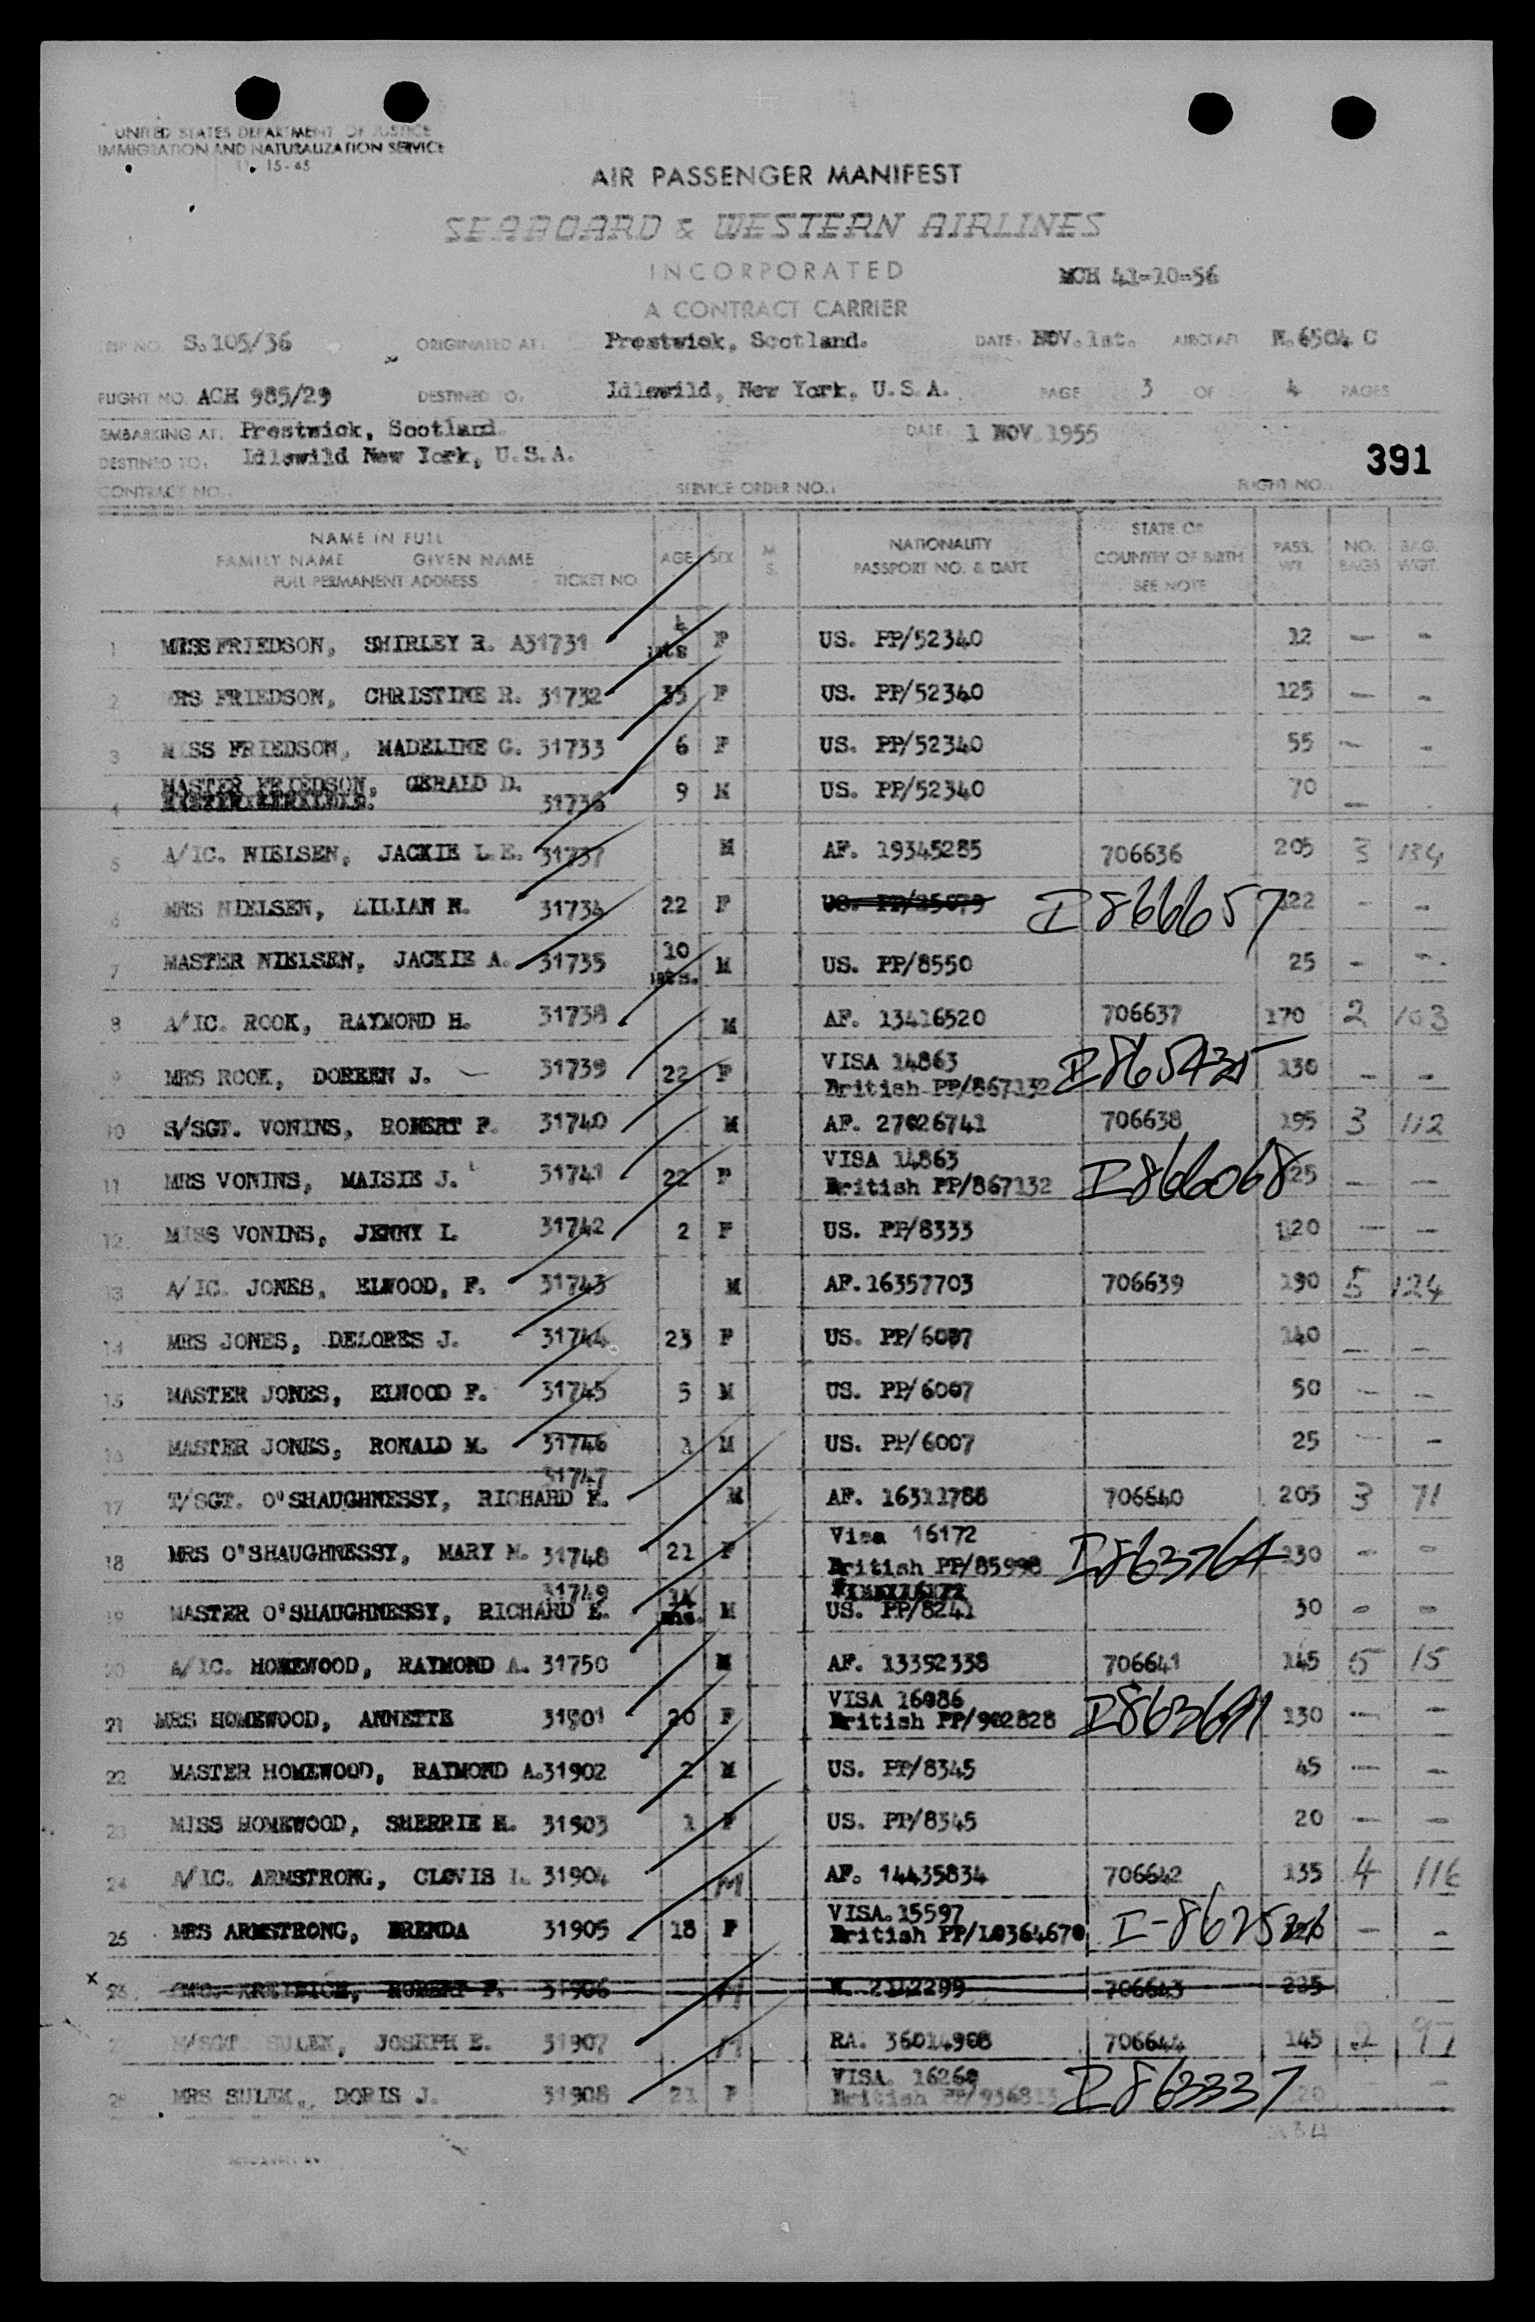 UNITED STATES DEPARTMENT OF JUSTICE
IMMIGRATION AND NATURALIZATION SERVICE
15-45
AIR PASSENGER MANIFEST
SEABOARD & WESTERN AIRLINES
INCORPORATED
MCH 41-10-56
A CONTRACT CARRIER
TRIP NO. S.105/36 ORIGINATED AT: Prestwick, Scotland. DATE: NOV. 1st. AIRCRAFT N.6504 C
FLIGHT NO. ACH 985/29 DESTINED TO: Idlewild, New York, U.S.A. PAGE 3 OF 4 PAGES
EMBARKING AT: Prestwick, Scotland. DATE 1 NOV 1955
DESTINED TO: Idlewild New York, U.S.A.
391
CONTRACT NO.: SERVICE ORDER NO.: FLIGHT NO.:
NAME IN FULL
FAMILY NAME GIVEN NAME
FULL PERMANENT ADDRESS TICKET NO AGE SEX M. S. NATIONALITY PASSPORT NO. & DATE STATE OR COUNTRY OF BIRTH SEE NOTE PASS. WT. NO. BAGS BAG. WGT.
1 MISS FRIEDSON, SHIRLEY R. A31731 4 mts F US. PP/52340 12 — -
2 MRS FRIEDSON, CHRISTINE R. 31732 35 F US. PP/52340 125 — -
3 MISS FRIEDSON, MADELINE C. 31733 6 F US. PP/52340 55 — -
4 MASTER FRIEDSON, GERALD D. 31736 9 M US. PP/52340 70 —
5 A/1C. NIELSEN, JACKIE L.E. 31737 M AF. 19345285 706636 205 3 134
6 MRS NIELSEN, LILIAN N. 31734 22 F US. PP/25073 I 866657 122 - -
7 MASTER NIELSEN, JACKIE A. 31735 10 mts. M US. PP/8550 25 - -
8 A/1C. ROOK, RAYMOND H. 31738 M AF. 13416520 706637 170 2 103
9 MRS ROOK, DOREEN J. 31739 22 F VISA 14863 British PP/867132 I 865435 130 - -
10 S/SGT. VONINS, ROBERT F. 31740 M AF. 27026741 706638 195 3 112
11 MRS VONINS, MAISIE J. 31741 22 F VISA 14863 British PP/867132 I866068 125 — -
12. MISS VONINS, JENNY L. 31742 2 F US. PP/8333 20 — -
13 A/1C. JONES, ELWOOD, F. 31743 M AF. 16357703 706639 190 5 124
14 MRS JONES, DELORES J. 31744 23 F US. PP/6007 140 — -
15 MASTER JONES, ELWOOD F. 31745 5 M US. PP/6007 50 — -
16 MASTER JONES, RONALD M. 31746 1 M US. PP/6007 25 - -
17 T/SGT. O'SHAUGHNESSY, RICHARD E. 31747 M AF. 16311788 706640 205 3 71
18 MRS O'SHAUGHNESSY, MARY M. 31748 21 F Visa 16172 British PP/85998 I863764 130 - -
19 MASTER O'SHAUGHNESSY, RICHARD E. 31749 14 mns. M US. PP/8241 30 - -
20 A/1C. HOMEWOOD, RAYMOND A. 31750 M AF. 13392338 706641 145 5 15
21 MRS HOMEWOOD, ANNETTE 31901 20 F VISA 16086 British PP/902828 I863691 130 — -
22 MASTER HOMEWOOD, RAYMOND A. 31902 2 M US. PP/8345 45 — -
23 MISS HOMEWOOD, SHERRIE H. 31903 1 F US. PP/8345 20 — -
24 A/1C. ARMSTRONG, CLOVIS L. 31904 M AF. 14435834 706642 135 4 116
25 MRS ARMSTRONG, BRENDA 31905 18 F VISA. 15597 British PP/L0364670 I-8625 - -
x 26. ROBERT F. 31906 M 2142299 706643 225
M/SGT SULEK, JOSEPH E. 31907 M RA. 36014908 706644 145 2 97
28 MRS SULEK, DORIS J. 31908 21 F VISA. 16260 British PP/936813 I 863337 120 -